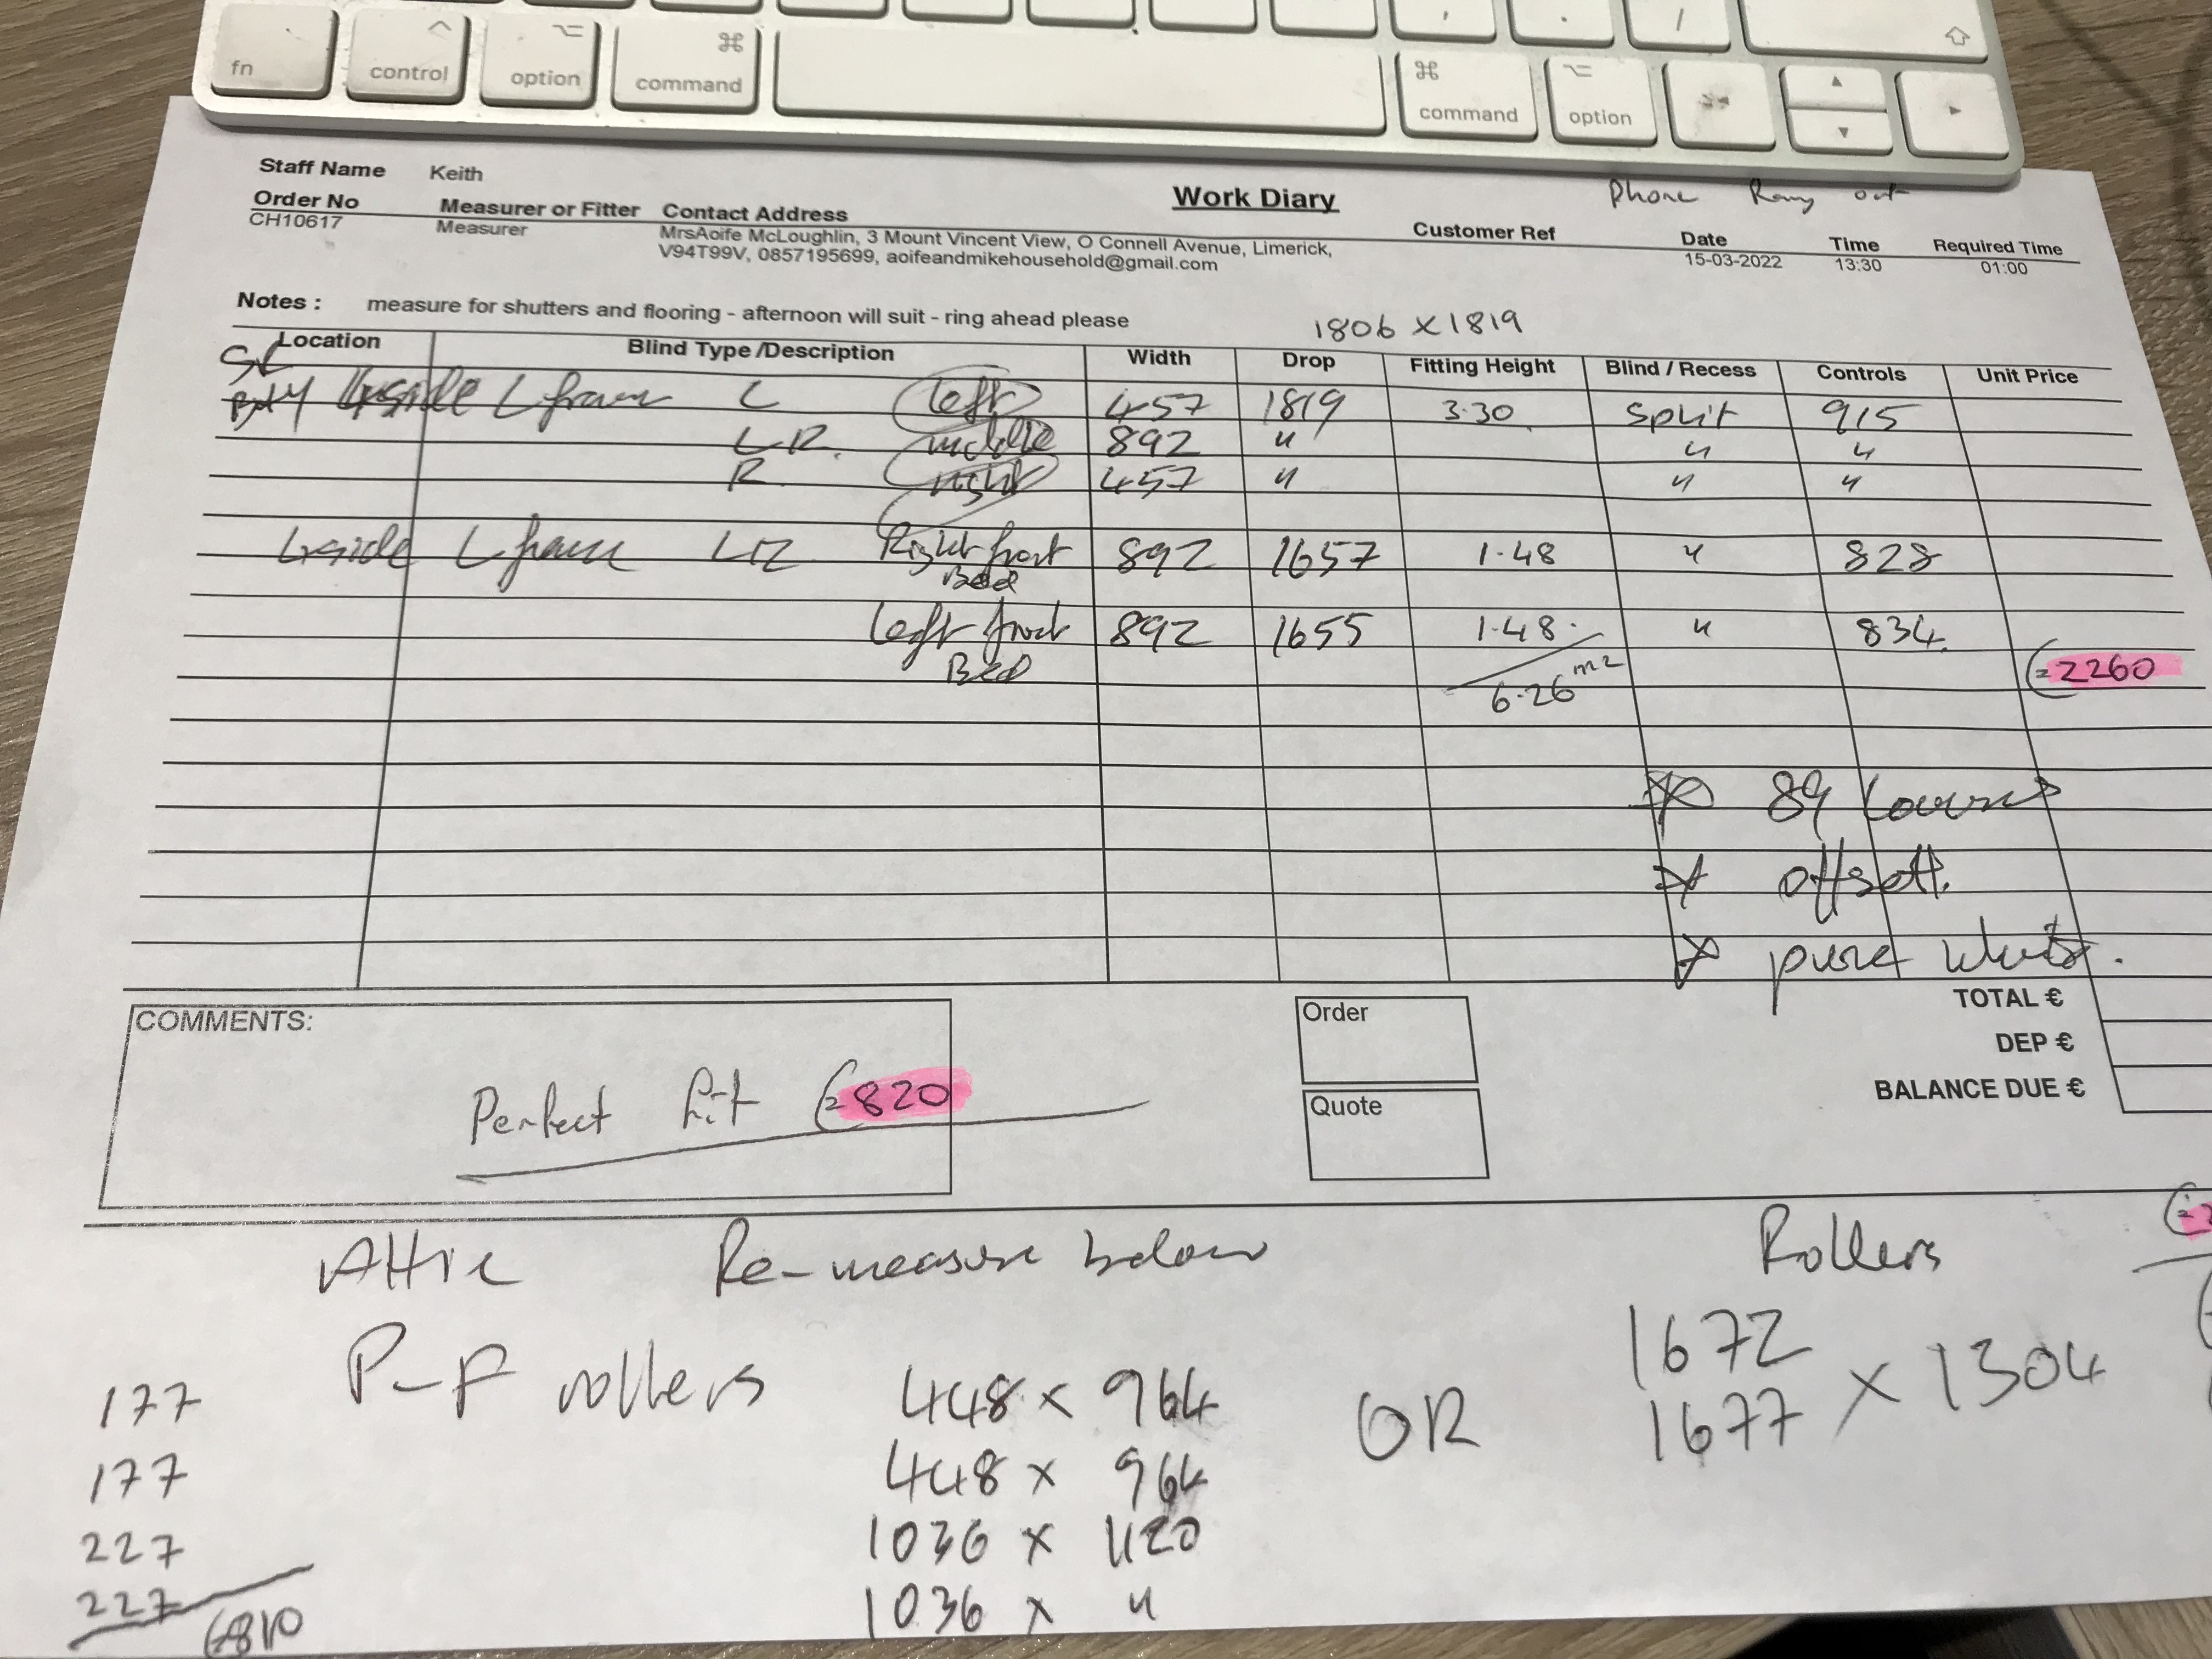 fn control option command command option
Staff Name Keith
Phone Rang out
Work Diary
Order No Measurer or Fitter Contact Address Customer Ref Date Time Required Time
CH10617 Measurer MrsAoife McLoughlin, 3 Mount Vincent View, O Connell Avenue, Limerick, 15-03-2022 13:30 01:00
V94T99V, 0857195699, aoifeandmikehousehold@gmail.com
Notes : measure for shutters and flooring - afternoon will suit - ring ahead please
1806 x 1819
Location Blind Type /Description Width Drop Fitting Height Blind / Recess Controls Unit Price
Bay Inside L frame L left 457 1819 3.30 Split 915
LR. middle 892 " " "
R right 457 " " "
Inside L frame LR Right front 892 1657 1.48 " 828
Bed
Left front 892 1655 1.48 " 834.
Bed
6.26 m2
=2260
89 Louvres
offsett.
pure white.
TOTAL €
DEP €
BALANCE DUE €
COMMENTS:
Perfect fit €820
Order
Quote
Attic Re-measure below Rollers
P-F rollers
1672
1677 x 1304
OR
448 x 964
448 x 964
1036 x 1120
1036 x "
177
177
227
227
€810